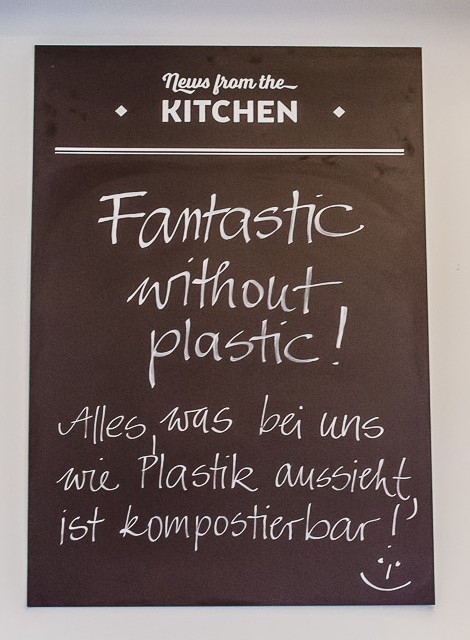 News from the
KITCHEN
Fantastic
without
plastic!
Alles, was bei uns
wie Plastik aussieht,
ist kompostierbar!